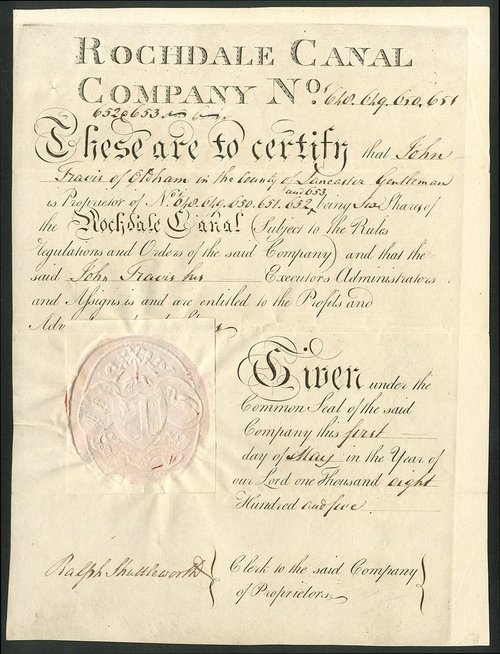 ROCHDALE CANAL
COMPANY Nos. 648. 649. 650. 651
652 & 653
These are to certify that John
Travis of Oldham in the County of Lancaster Gentleman
is Proprietor of Nos. 648. 649. 650. 651. 652 and 653, being Six Shares of
the Rochdale Canal (Subject to the Rules
regulations and Orders of the said Company) and that the
said John Travis his Executors Administrators
and Assigns is and are entitled to the Profits and
Given under the
Common Seal of the said
Company this first
day of May in the Year of
our Lord one Thousand eight
Hundred and five
Ralph Shuttleworth
Clerk to the said Company
of Proprietors